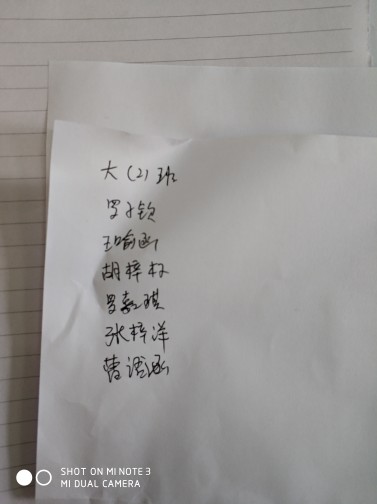 大(2)班
罗子钦
王喻涵
胡梓杺
罗嘉琪
张梓洋
曹语涵
SHOT ON MI NOTE 3
MI DUAL CAMERA